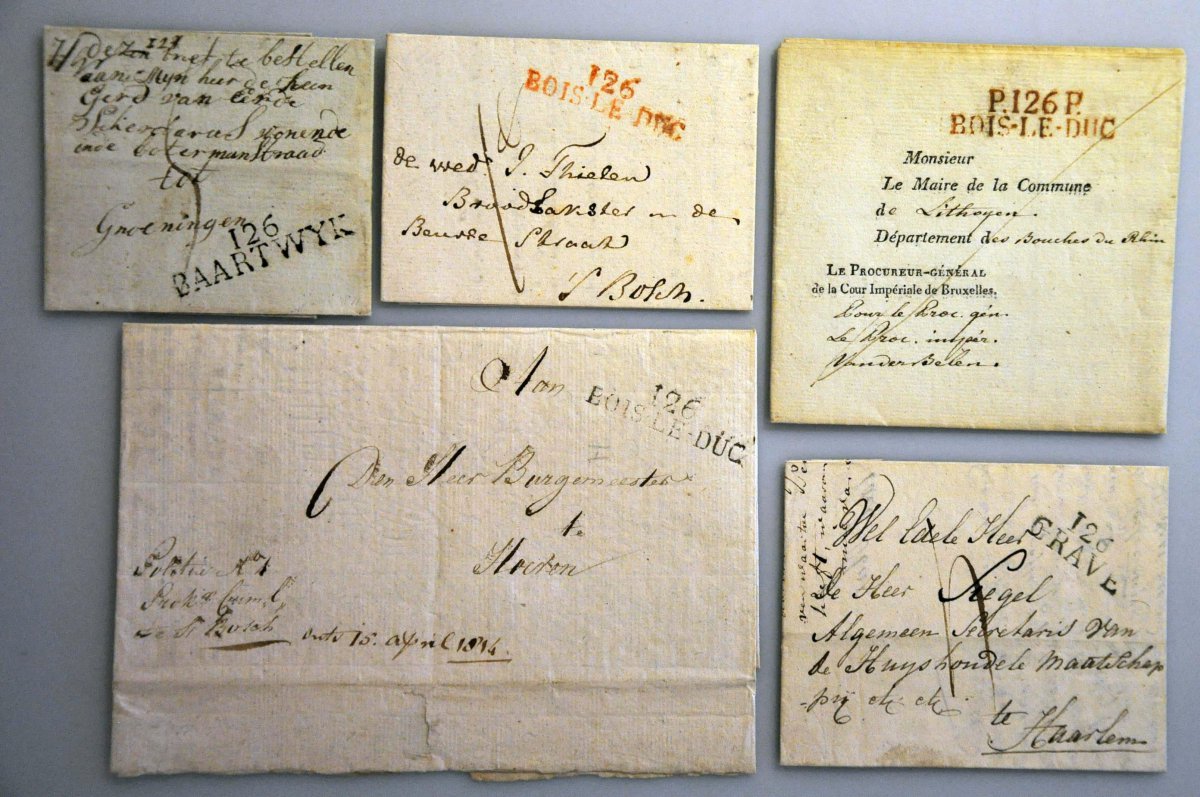 dezen
127
met te bestellen
aan Mijn heer de heer
Gerd van
wonende
inde botermanstraad
tot
Groeningen
126
BAARTWYK
126
BOIS-LE-DUC
de wed. J. Thielen
Broodbakster in de
Beurse Straat
'S Bosch.
P.126 P.
BOIS-LE-DUC
Monsieur
Le Maire de la Commune
de Lithoyen.
Département des Bouches du Rhin
LE PROCUREUR-GÉNÉRAL
de la Cour Impériale de Bruxelles.
Pour le Proc. gén.
Le Proc. impér.
VanderBelen.
Aan
126
BOIS-LE-DUC
Den Heer Burgemeester
te
de St Bosch
15. april 1814.
126
GRAVE
Wel Edele Heer
De Heer Siegel
Algemeen Secretaris van
de Huyshoudele Maatschap
-pij etc etc
te
Haarlem